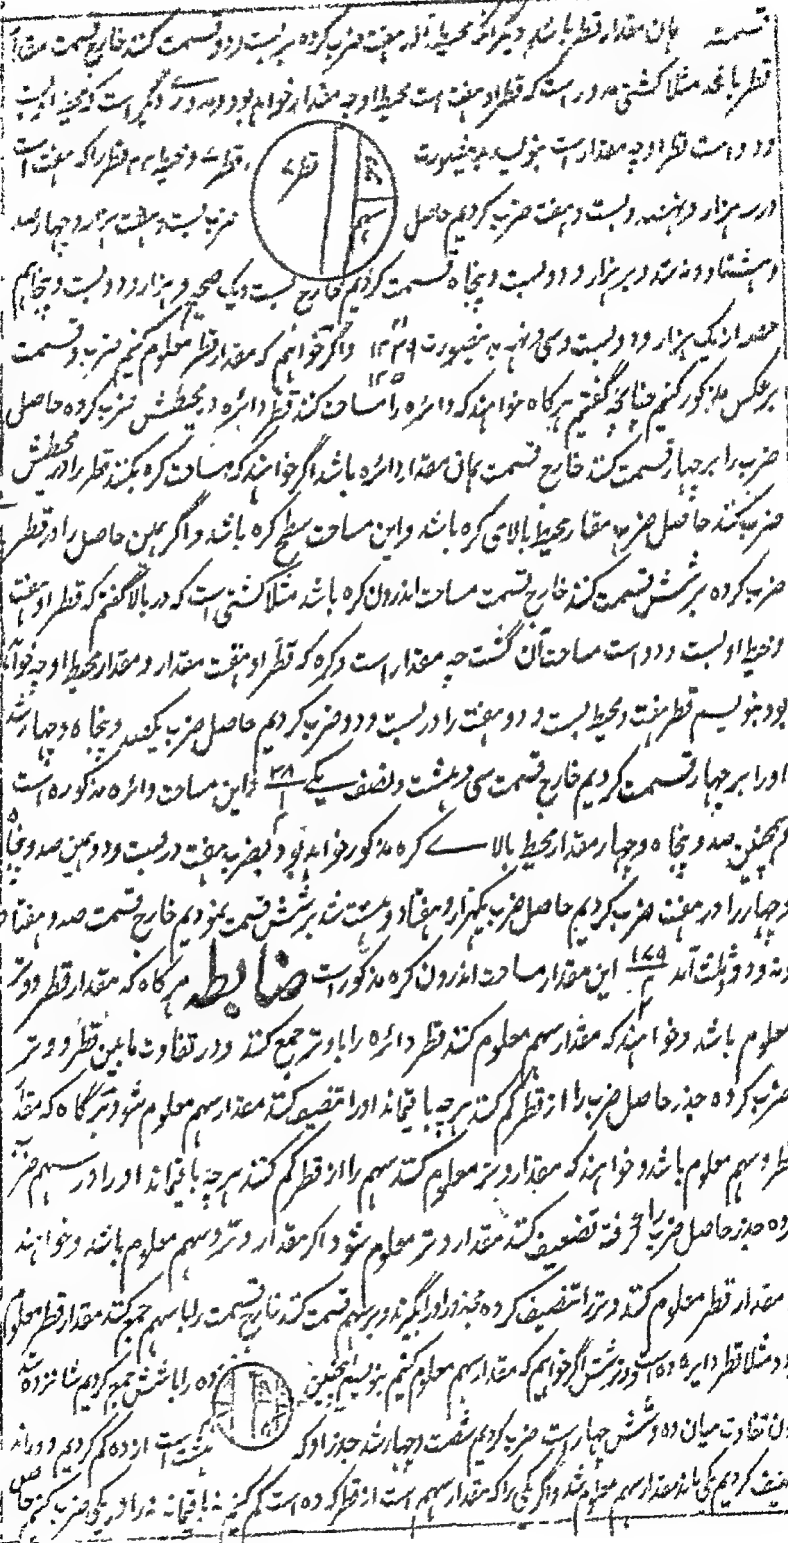 قسمت همان مقدار قطر باشد دیگر آنکه محیط را در هفت ضرب کرده بر بیست و دو قسمت کنند خارج قسمت مقدار
قطر باشد مثلا کشتی مدور است که قطر او هفت است محیط او چه مقدار خواهد بود و مدورے دیگر است که محیط او بیست
و دو است قطر او چه مقدار است بنویسید بدینصورت قطر ۷ محیط سهم قطر ۷ و محیط ۲۲ قطر را که هفت است
در سه هزار و نهصد و بیست و هفت ضرب کردیم حاصل ضرب بیست و هفت هزار و چهار صد
و هشتاد و نه شد و بر هزار و دو بیست و پنجاه قسمت کردیم خارج بیست و یک صحیح و هزار و دو بیست و پنجاهم
حصه از یک هزار و دو بیست و سی و نه بدینصورت ۲۱ ۱۲۳۹ ۱۲۵۰ و اگر خواهیم که مقدار قطر معلوم کنیم ضرب و قسمت
بر عکس مذکور کنیم چنانچه گفتیم هرگاه خواهند که دائره را مساحت کنند قطر دائره در محیطش ضرب کرده حاصل
ضرب را بر چهار قسمت کنند خارج قسمت همان مقدار دائره باشد اگر خواهند که مساحت کره بکنند قطر را در محیطش
ضرب کنند حاصل ضرب مقدار محیط بالای کره باشد و این مساحت سطح کره باشد و اگر همین حاصل را در قطر
ضرب کرده بر شش قسمت کنند خارج قسمت مساحت اندرون کره باشد مثلا کشتی است که در بالا گفتم که قطر او هفت
و محیط او بیست و دو است مساحت آن گشت چه مقدار است و کره که قطر او هفت مقدار و مقدار محیط او چه خواهد
بود بنویسم قطر هفت و محیط بیست و دو و هفت را در بیست و دو ضرب کردیم حاصل ضرب یکصد و پنجاه و چهار شد
او را بر چهار قسمت کردیم خارج قسمت سی و هشت و نصف یکے ۳۸ ۱ ۲ این مساحت دائره مذکوره است
و همچنین صد و پنجاه و چهار مقدار محیط بالاے کره مذکور خواهد بود بضرب هفت در بیست و دو و همین صد و پنجاه
و چهار را در هفت ضرب کردیم حاصل ضرب یکهزار و هفتاد و هشت شد بر شش قسمت نمودیم خارج قسمت صد و هفتاد
و نه و دو ثلث آمد ۱۷۹ ۲ ۳ این مقدار مساحت اندرون کره مذکور است ضابطه هرگاه که مقدار قطر و وتر
معلوم باشد و خواهند که مقدار سهم معلوم کنند قطر دائره را با وتر جمع کنند و در تفاوت مابین قطر و وتر
ضرب کرده جذر حاصل ضرب را از قطر کم کنند هر چه باقیماند او را تنصیف کنند مقدار سهم معلوم شود و هرگاه که مقدار
قطر و سهم معلوم باشد و خواهند که مقدار وتر معلوم کنند سهم را از قطر کم کنند هر چه باقیماند او را در سهم ضرب
کرده جذر حاصل ضرب را گرفته تضعیف کنند مقدار وتر معلوم شود و اگر مقدار وتر و سهم معلوم باشد و خواهند
مقدار قطر معلوم کنند وتر را تنصیف کرده مجذور او را گیرند و بر سهم قسمت کنند خارج قسمت را با سهم جمع کنند مقدار قطر معلوم
شود مثلا قطر دایره ده است و وتر شش اگر خواهیم که مقدار سهم معلوم کنیم بنویسیم اینچنین ده را با شش جمع کردیم شانزده شد
چون تفاوت میان ده و شش چهار است ضرب کردیم شصت و چهار شد جذر او که هشت است از ده کم کردیم دو ماند
تنصیف کردیم یکی ماند مقدار سهم معلوم شد و اگر یکی را که مقدار سهم است از قطر که ده است کم کنیم نه باقیماند نه را در یکی ضرب کنیم حاصل